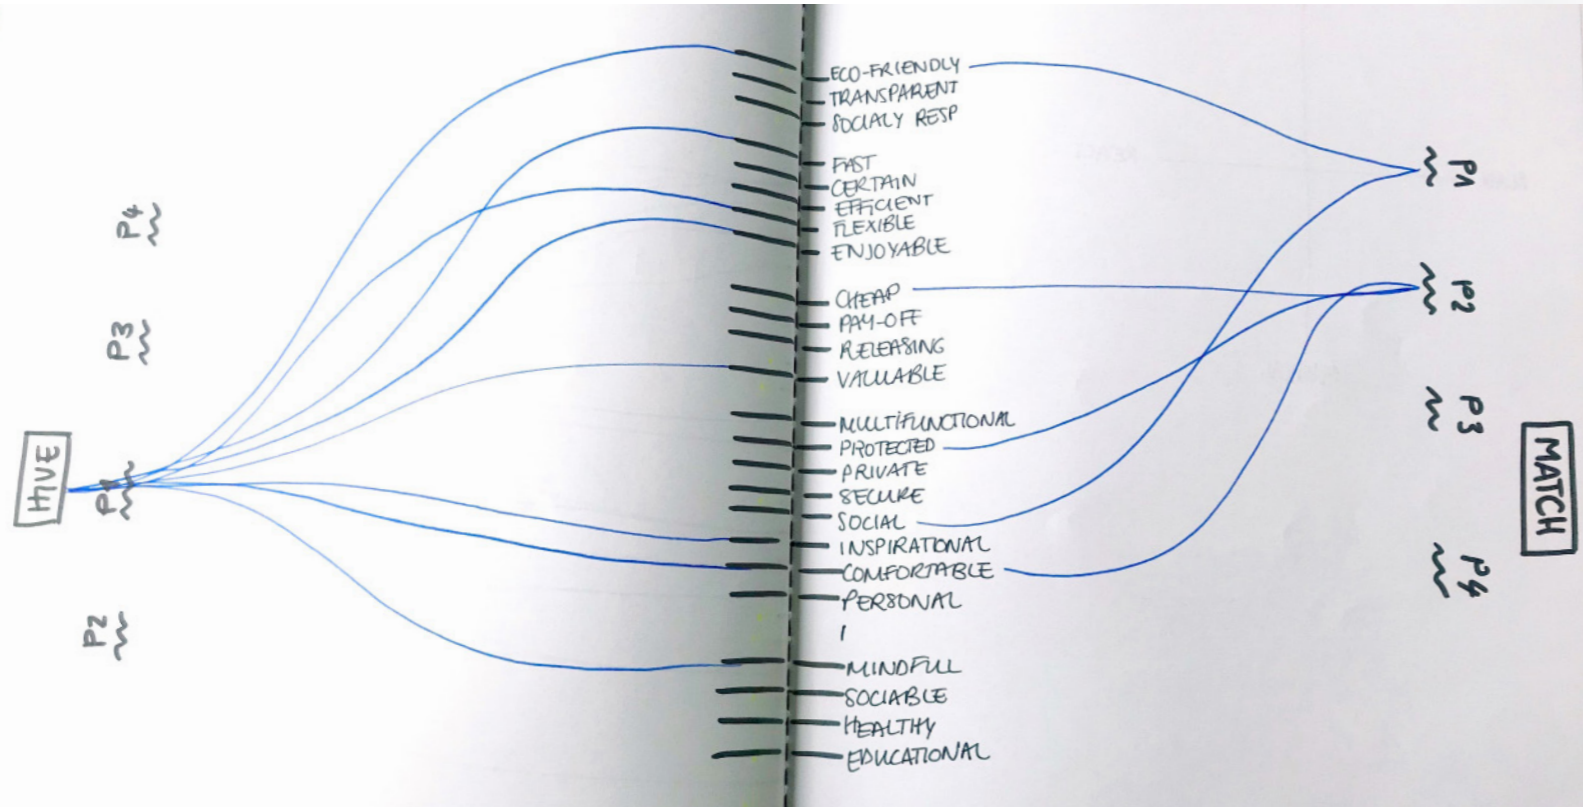 P4
P3
HIVE
P1
P2
ECO-FRIENDLY
TRANSPARENT
SOCIALY RESP
FAST
CERTAIN
EFFICIENT
FLEXIBLE
ENJOYABLE
CHEAP
PAY-OFF
RELEASING
VALUABLE
MULTIFUNCTIONAL
PROTECTED
PRIVATE
SECURE
SOCIAL
INSPIRATIONAL
COMFORTABLE
PERSONAL
MINDFULL
SOCIABLE
HEALTHY
EDUCATIONAL
P1
P2
P3
P4
MATCH